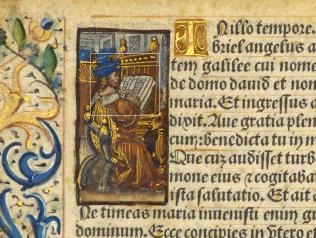 N illo tempore.
briel angelus a
tem galilee cui nome
de domo dauid et nom
maria. Et ingressus a
dixit. Aue gratia plen
cum: benedicta tu in m
Que cuz audisset turb
mone eius et cogitaba
ista salutatio. Et ait
Ne timeas maria inuenisti enim gr
dominum. Ecce concipies in vtero et